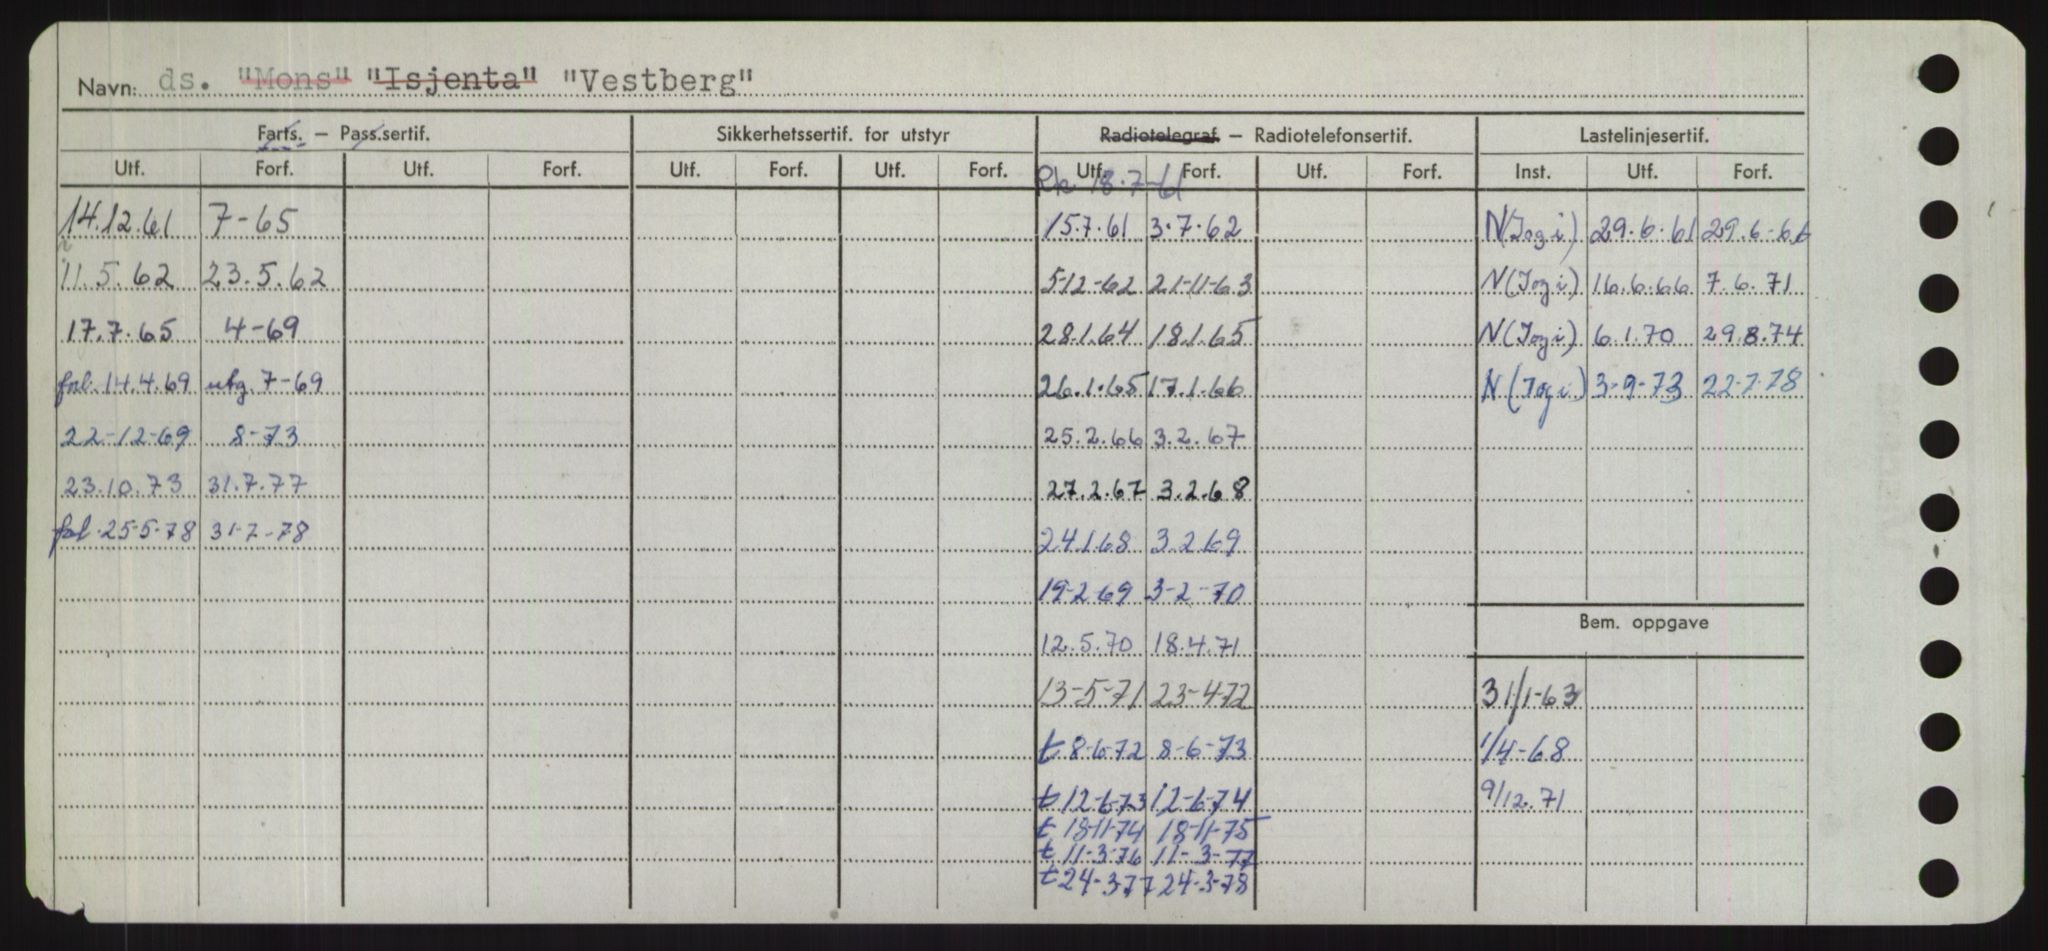 Navn: ds. "Mons" "Isjenta" "Vestberg"
Farts. – Pass.sertif. Sikkerhetssertif. for utstyr Radiotelegraf – Radiotelefonsertif. Lastelinjesertif.
Utf. Forf. Utf. Forf. Utf. Forf. Utf. Forf. Utf. Forf. Utf. Forf. Inst. Utf. Forf.
18.7-61
14.12.61 7-65 15.7.61 3.7.62 N(Jogi) 29.6.61 29.6-66
11.5.62 23.5.62 5-12-62 21-11-63 N(Jogi) 16.6.66 7.6.71
17.7.65 4-69 28.1.64 18.1.65 N(Jogi) 6.1.70 29.8.74
14.4.69 utg. 7-69 26.1.65 17.1.66 N(Jogi) 3-9-73 22-7-78
22-12-69 8-73 25.2.66 3.2.67
23.10.73 31.7.77 27.2.67 3.2.68
25-5-78 31-7-78 24.1.68 3.2.69
19-2-69 3-2-70
Bem. oppgave
12.5.70 18.4.71
13-5-71 23-4-72 31/1-63
t 8-6-72 8-6-73 1/4-68
t 12-6-73 12-6-74 9/12.71
t 18-11-74 18-11-75
t 11-3-76 11-3-77
t 24-3-77 24-3-78